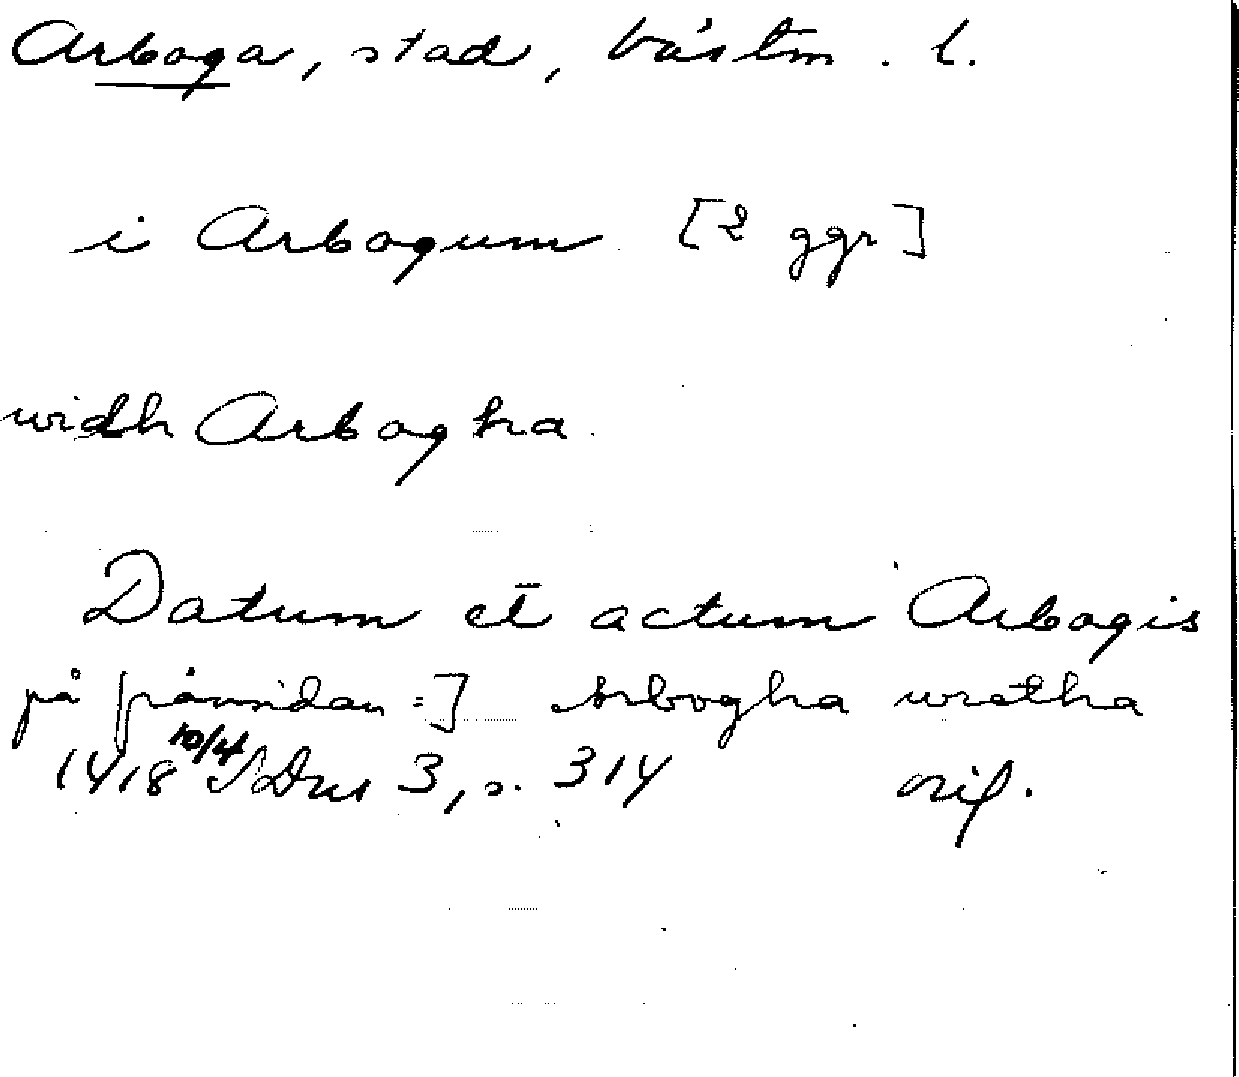 Arboga, stad, Västm. l.
i Arbogum [2 ggr]
widh Arbogha
Datum et actum Arbogis
på [råmidan =] Arbogha wretha
1418 10/4 SDns 3, s. 314 orig.